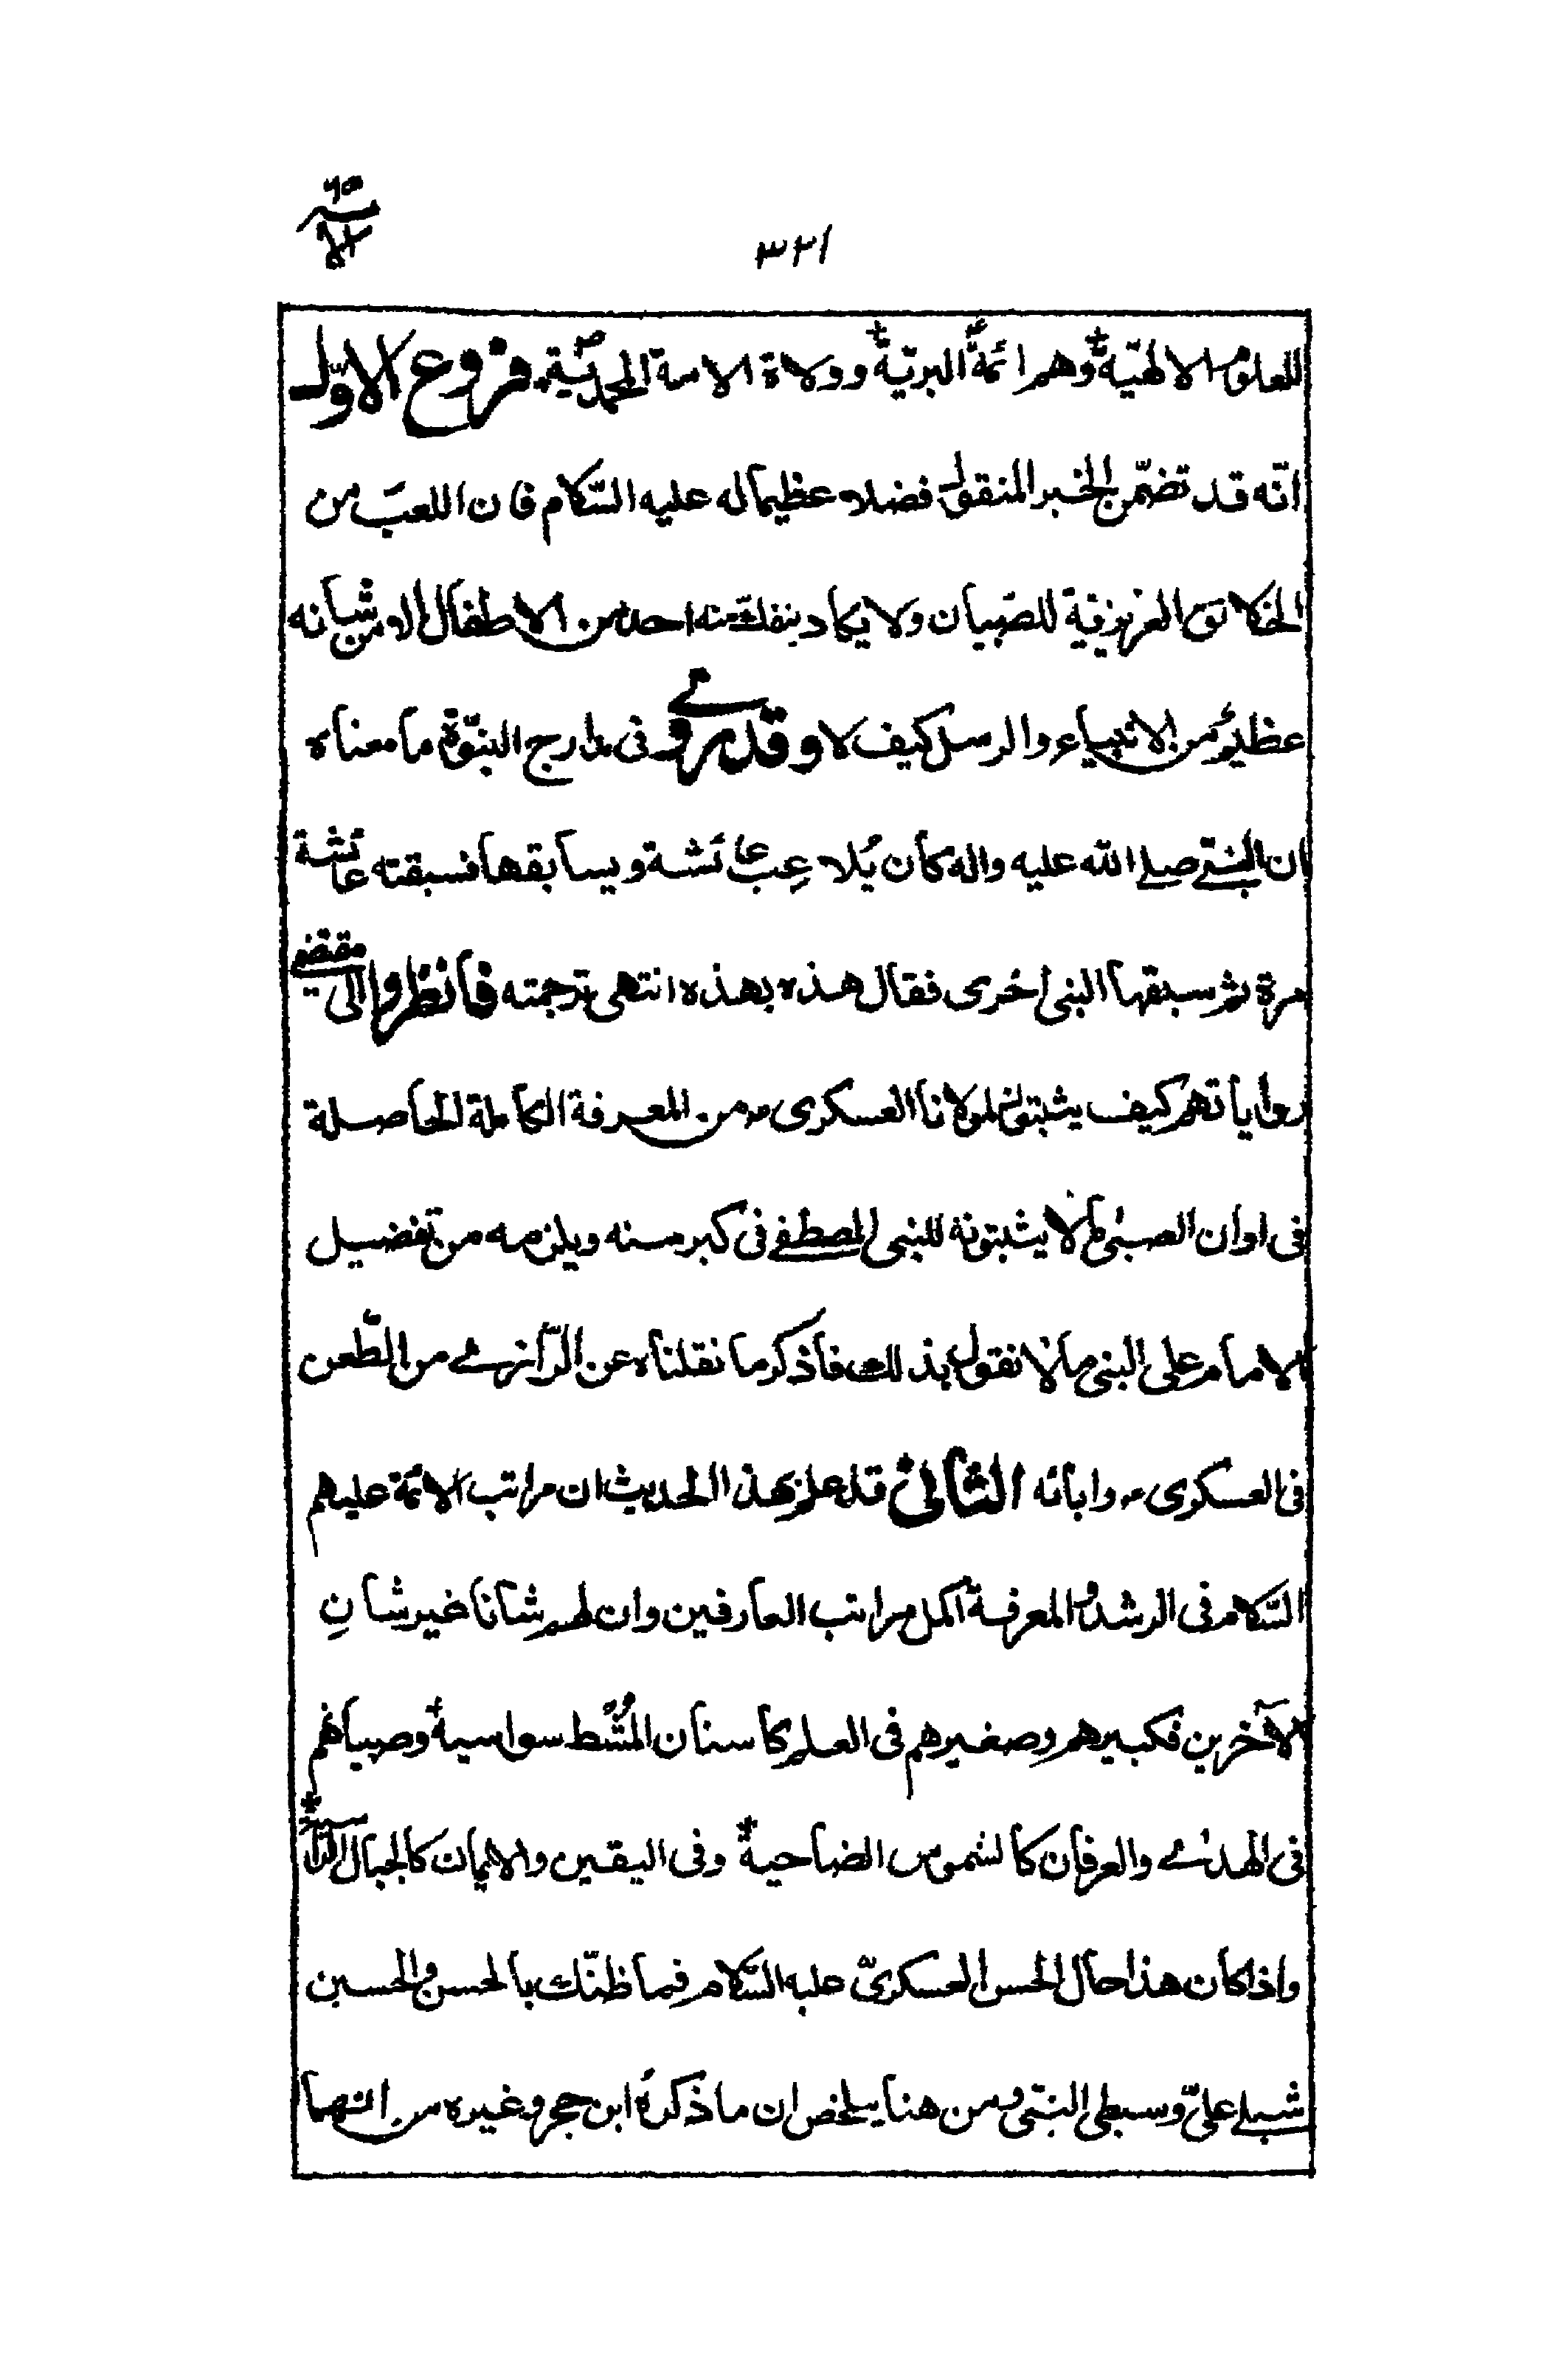 ٣٢١
للعلوم الالهيّة وهم ائمة البريّة وولاة الامة المحمديّة فروع الاوّل
انّه قد تضمّن الخبر المنقول فضلا عظيما له عليه السّلام فان اللعب من
الخلائق الغريزية للصبيان ولا يكاد ينفك عنه احد من الاطفال الا من شانه
عظيم من الانبياء والرسل كيف لا وقد مروي فى مدارج النبوّة ما معناه
ان النبي صلى الله عليه واله كان يُلاعِب عائشة ويسابقها فسبقته عائشة
مرة ثم سبقها النبى اخرى فقال هذه بهذه انتهى ترجمته فانظروا الى مقتضى
رواياتهم كيف يثبتون لمولانا العسكرى من المعرفة الكاملة الحاصلة
فى اوان الصبى ما لا يثبتونه للنبى المصطفى فى كبر سنه ويلزمه من تفضيل
الامام على النبى ما لا نقول بذلك فاذكر ما نقلناه عن الرّازي من الطّعن
فى العسكرى وابائه الثانى قد علم بهذا الحديث ان مراتب الائمة عليهم
السّلام فى الرشد والمعرفة اكمل مراتب العارفين وان لهم شانا غير شانِ
الآخرين فكبيرهم وصغيرهم فى العلم كاسنان المُشط سواسية وصبيانهم
فى الهدى والعرفان كالشموس الضاحية وفى اليقين والايمان كالجبال الراسية
واذا كان هذا حال الحسن العسكرىّ عليه السّلام فما ظنّك بالحسن والحسين
شبلي علىّ وسبطى النبّى ومن هنا يلخص ان ما ذكرهُ ابن حجر وغيره من انهما